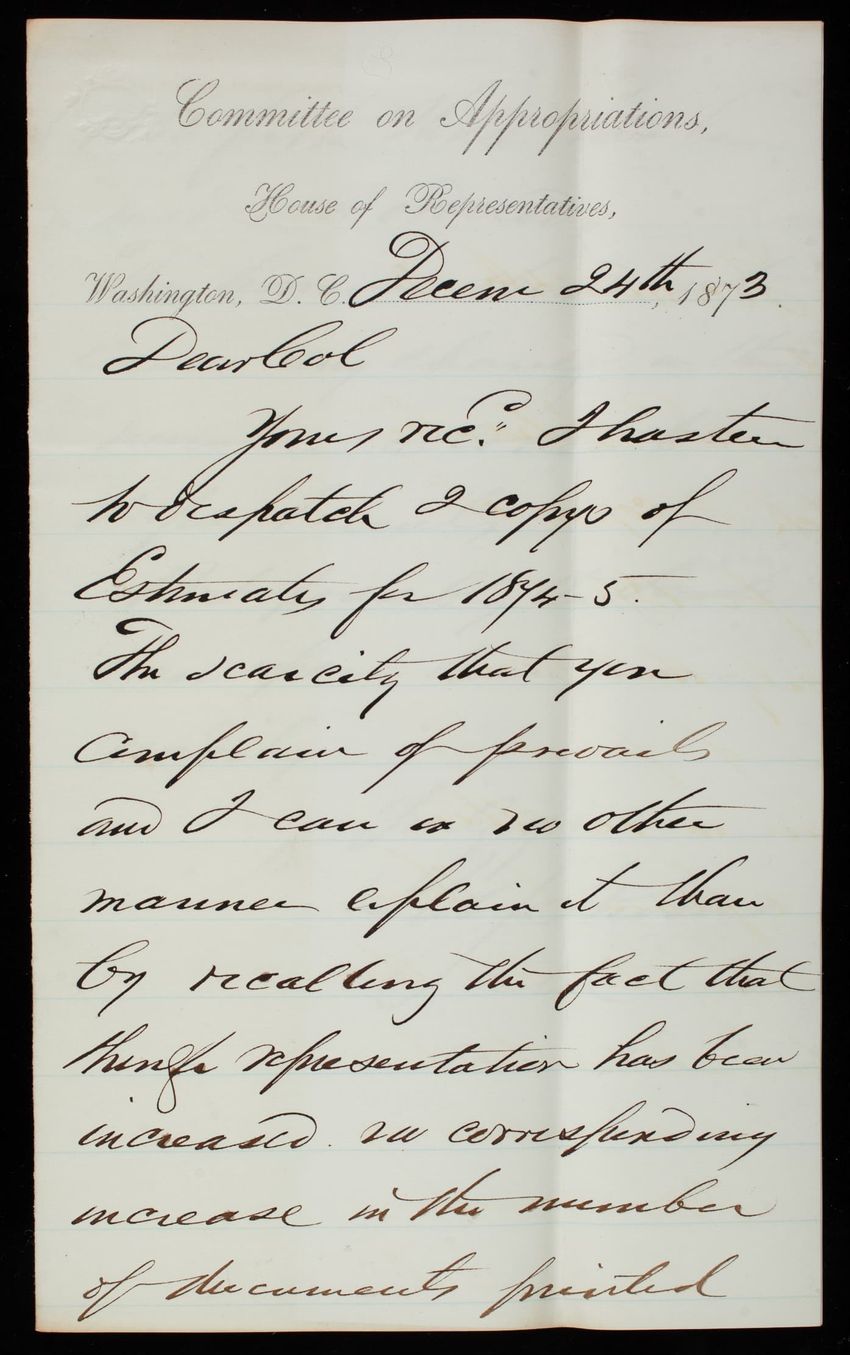 Committee on Appropriations,
House of Representatives,
Washington, D. C. Decem 24th, 1873.
Dear Col
Yours recd. I hasten
to despatch 2 copys of
Estimates for 1874-5.
The scarcity that you
complain of prevails
and I can in no other
manner explain it than
by recalling the fact that
though representation has been
increased no corresponding
increase in the number
of documents printed